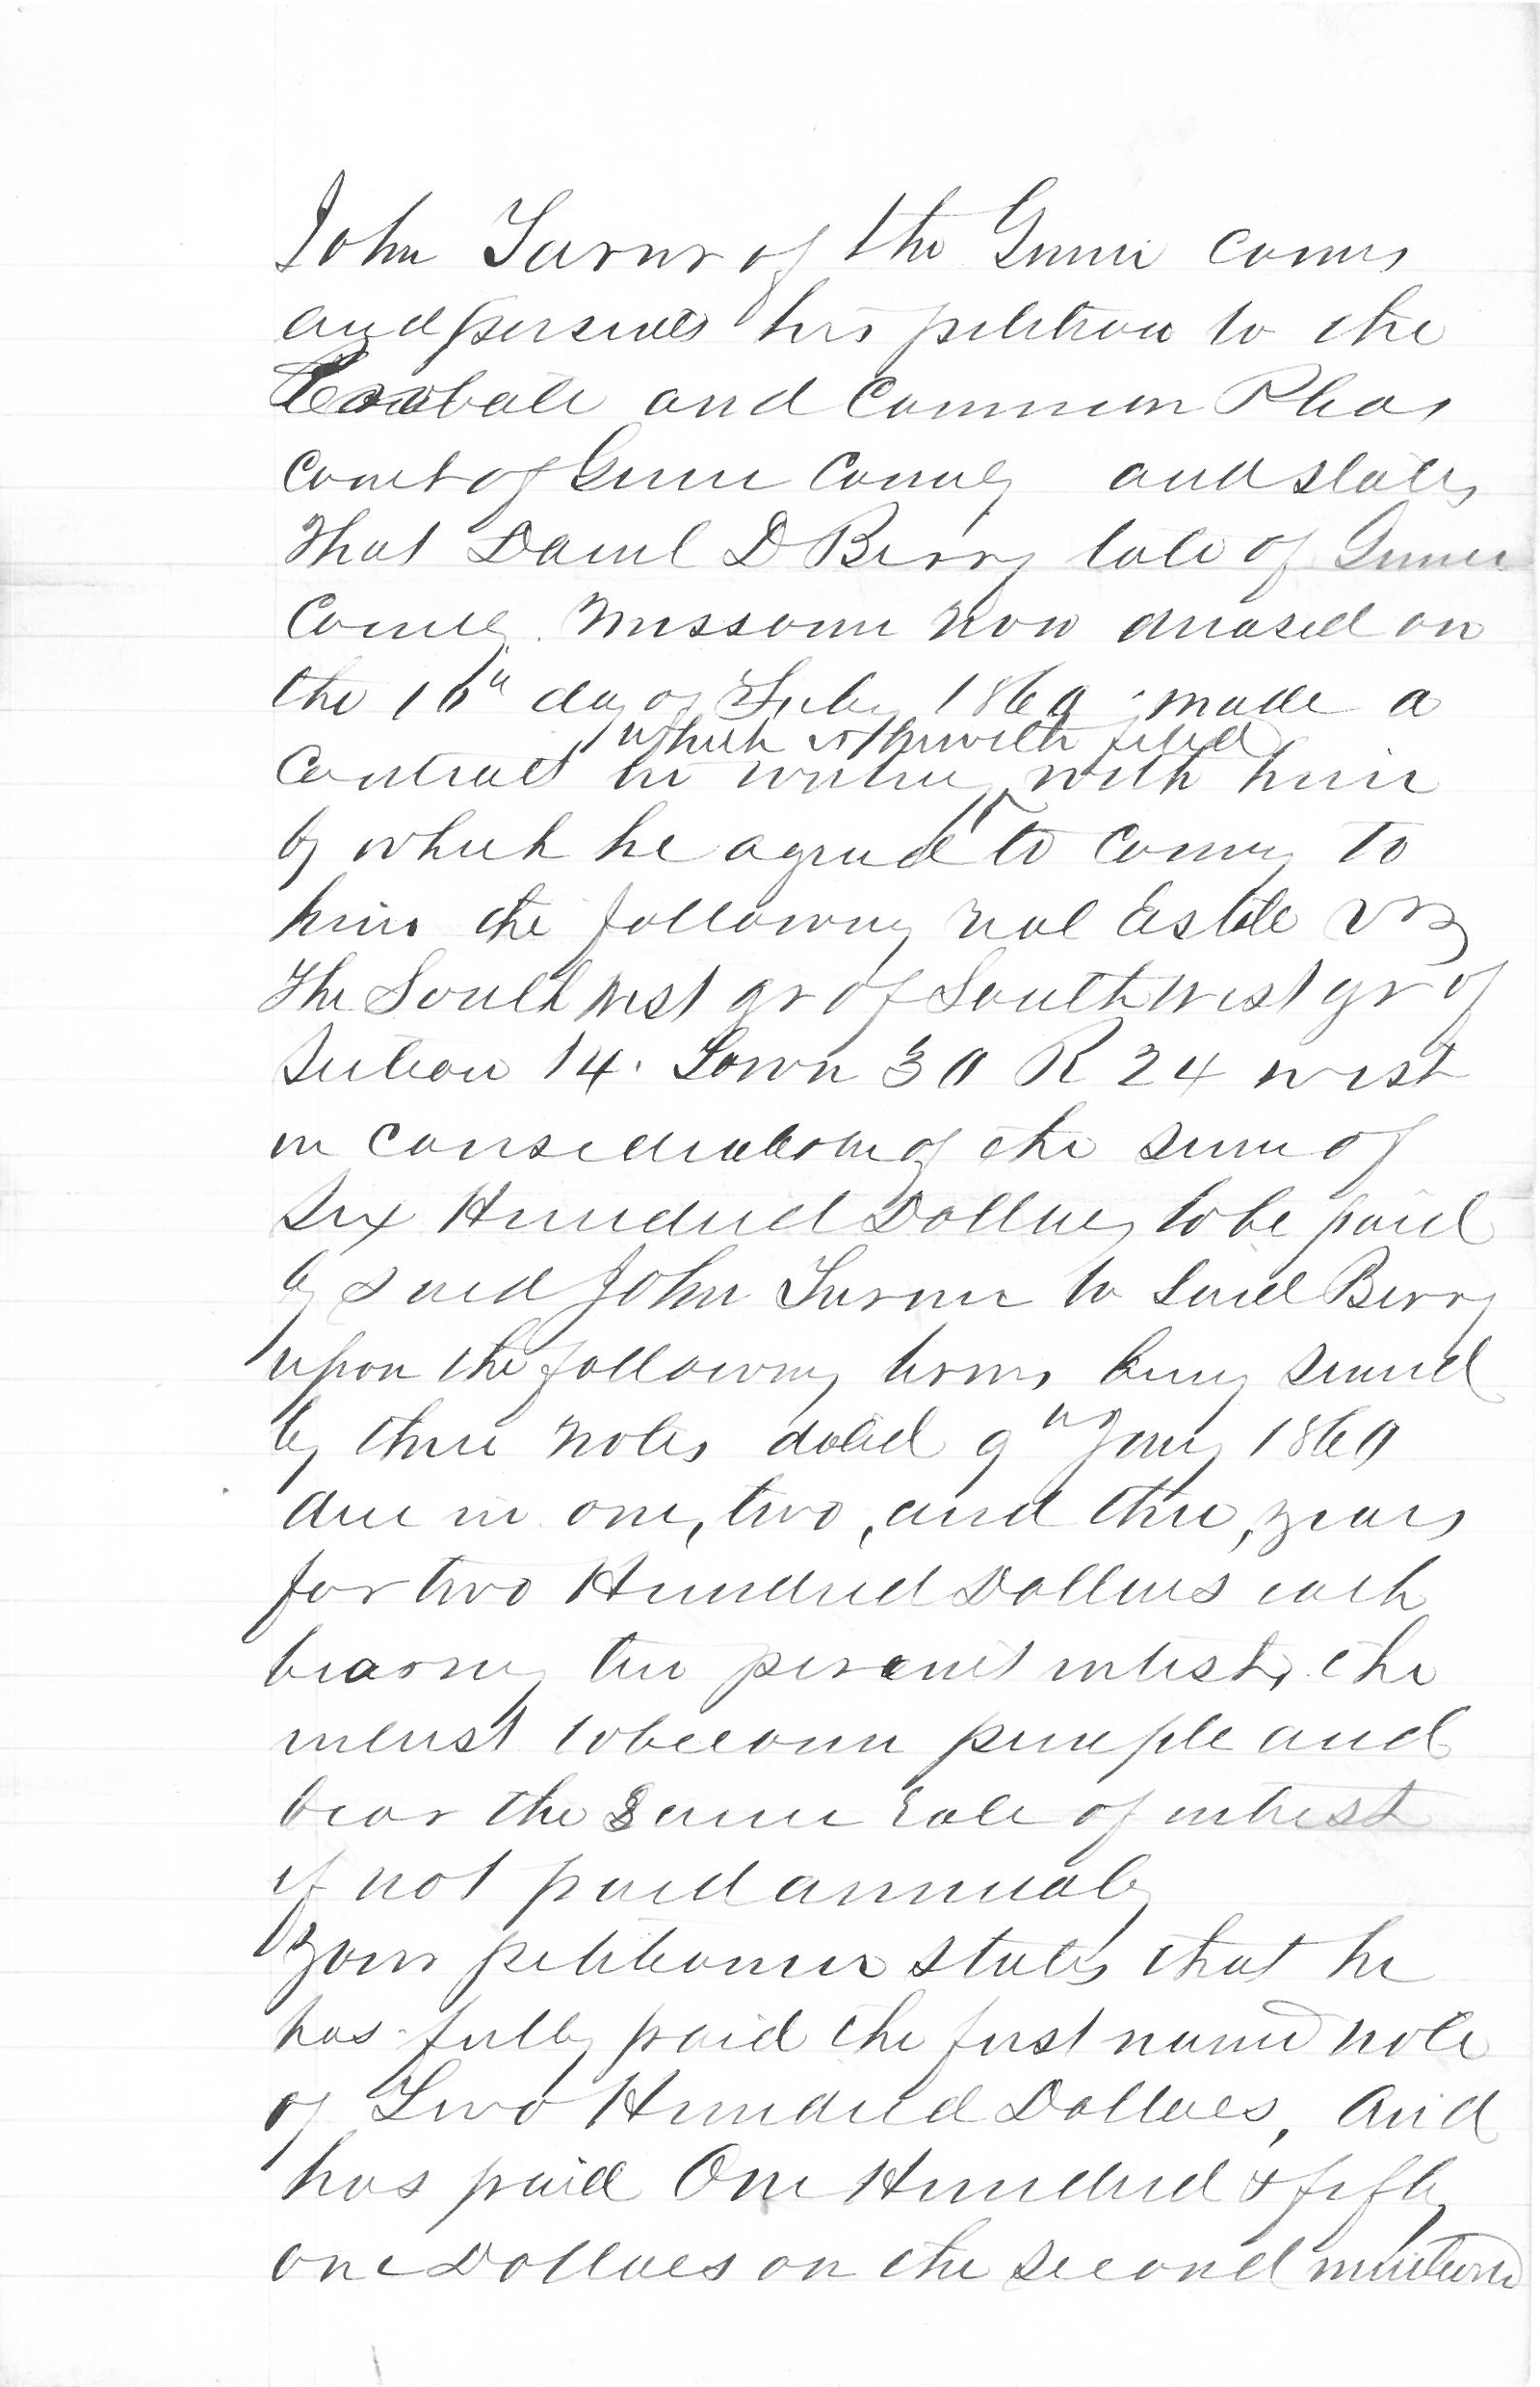 John Turner of the Greene County
and presents his petition to the
Probate and Common Pleas
Court of Greene County and states
that Daniel D Berry late of Greene
County Missouri now deceased on
the 10th day of July 1860 made a
which is herewith filed
Contract in writing with him
by which he agreed to Convey to
him the following real Estate viz
The South West qr of South West qr of
Section 14. Town 30 R 24 west
in consideration of the sum of
Six Hundred Dollars to be paid
by said John Turner to said Berry
upon the following terms being secured
by three notes dated 9th Jany 1860
due in one, two, and three, years
for two Hundred Dollars each
bearing ten percent intrest, the
interest to become principle and
bear the same rate of intrest
if not paid annualy
your petitioner states that he
has fully paid the first named note
of Two Hundred Dollars, and
has paid One Hundred & fifty
one Dollars on the second mentioned